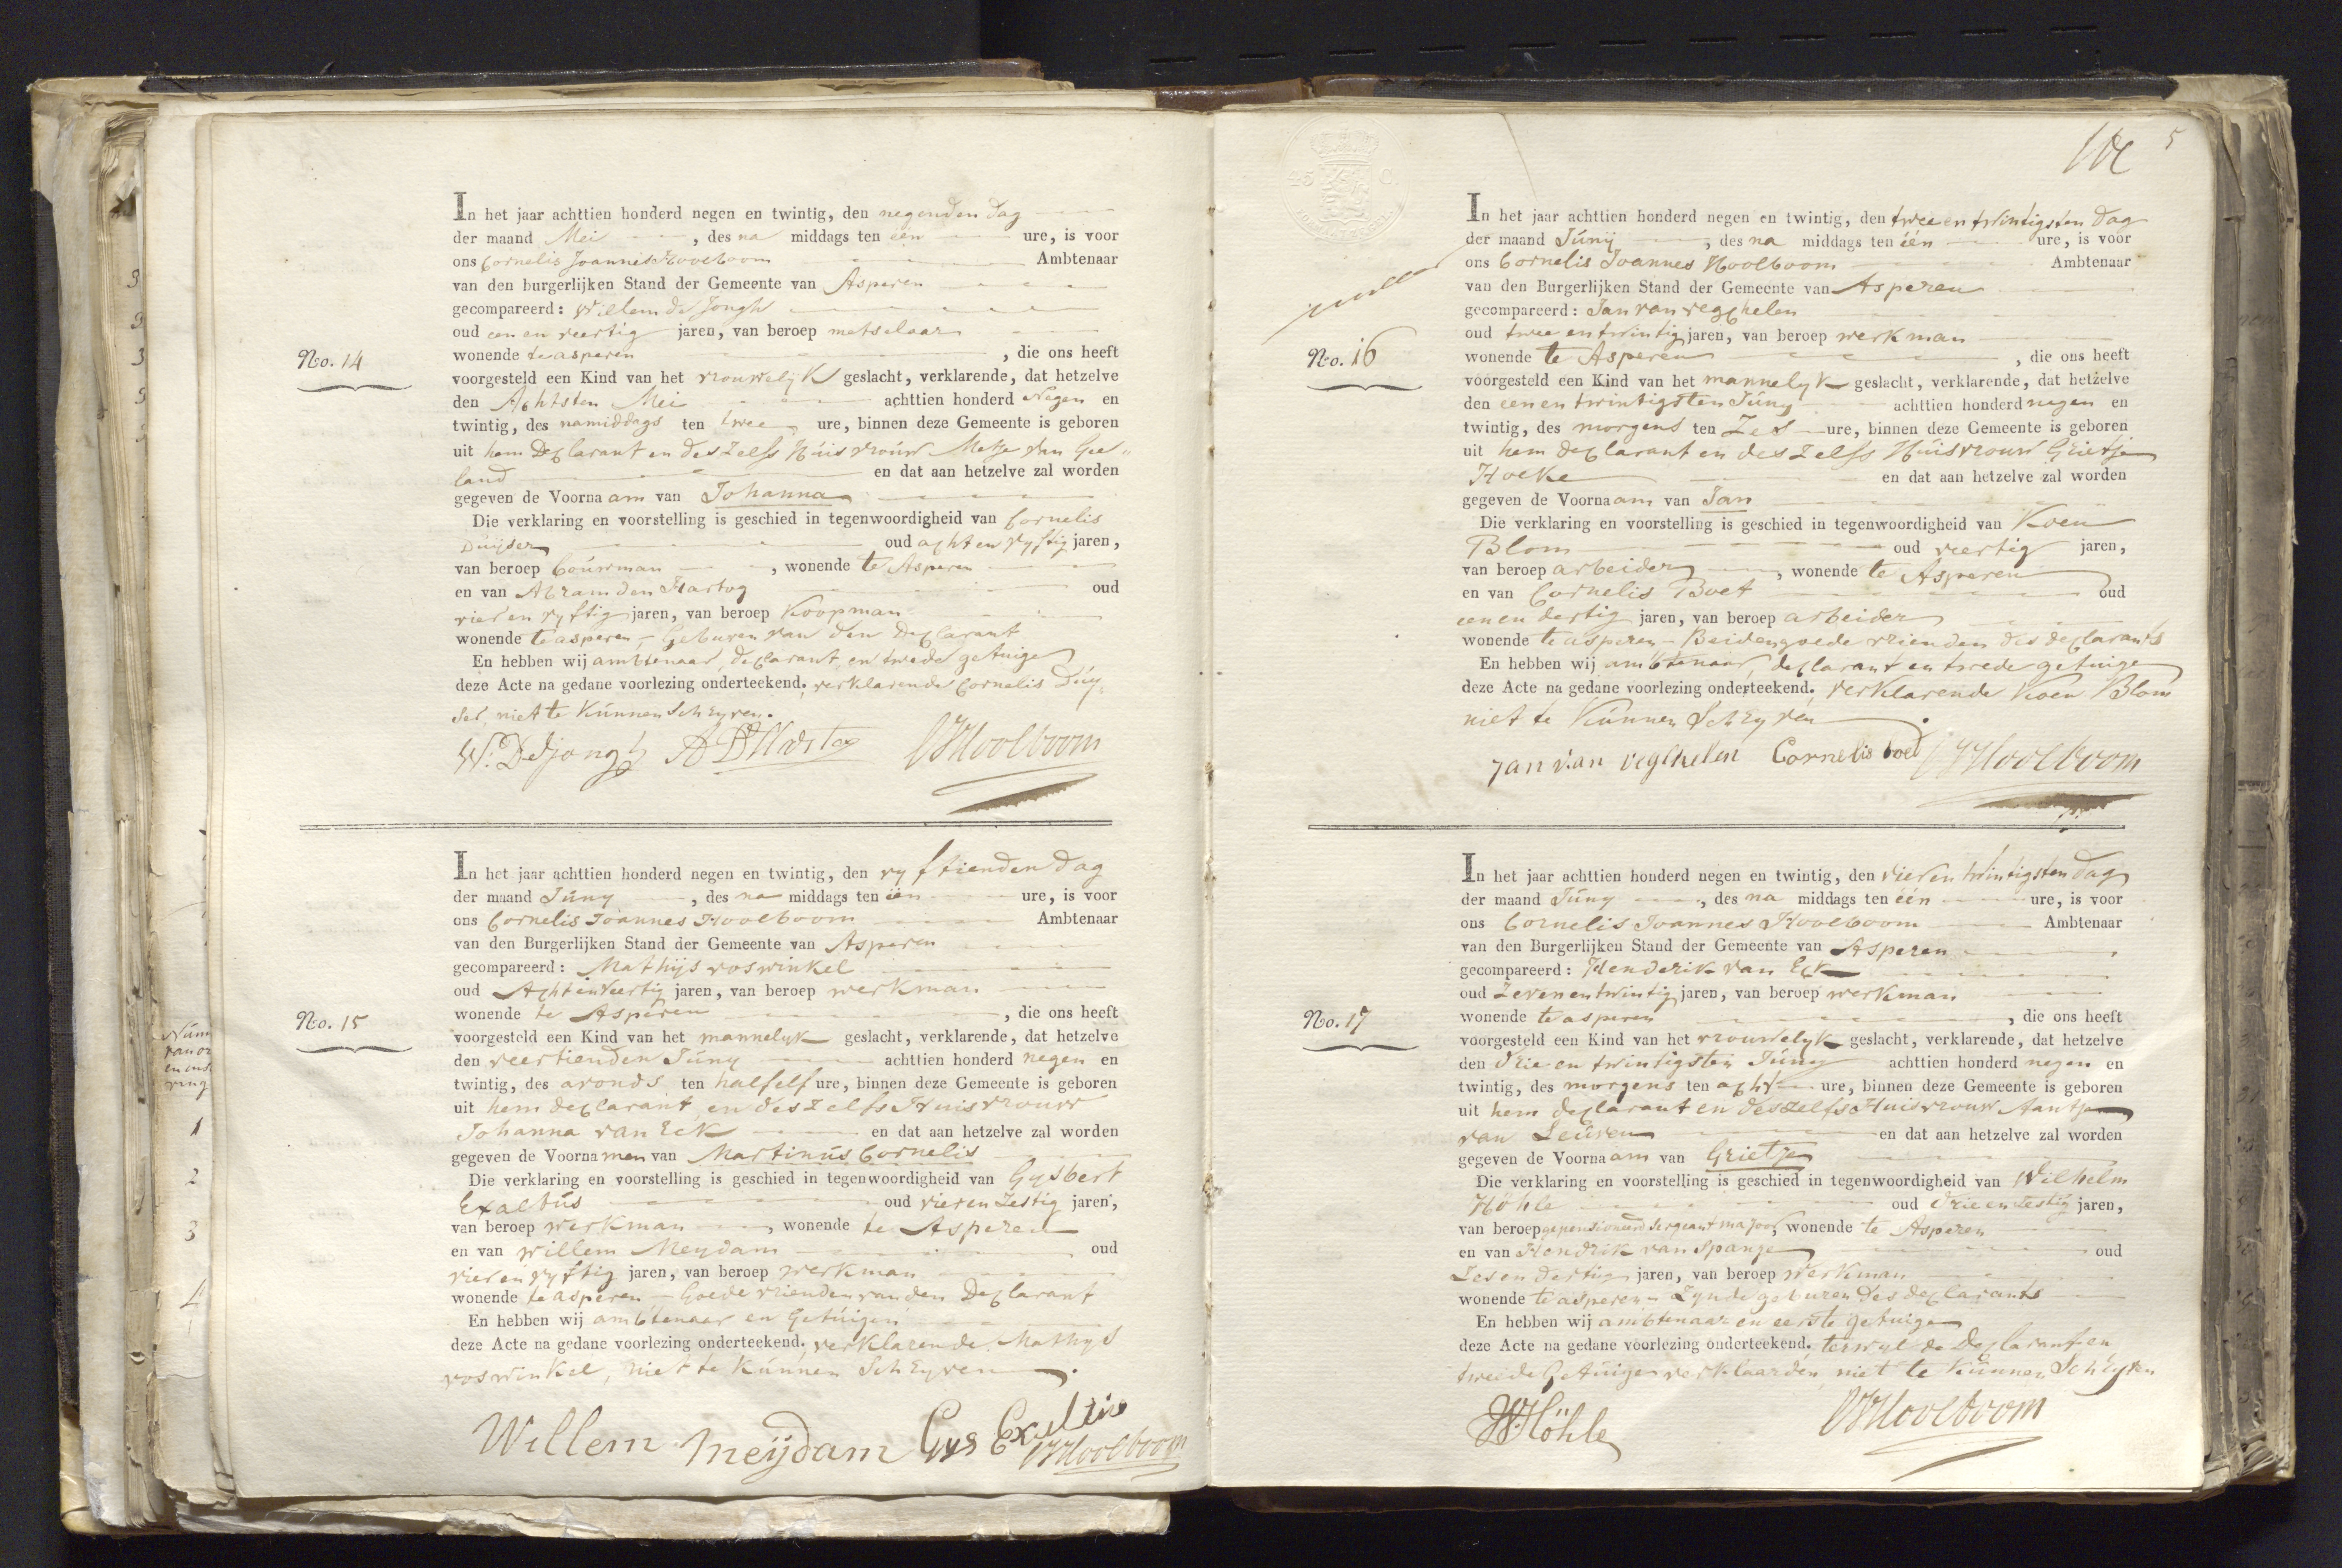 In het jaar achttien honderd negen en twintig, den negenden dag
der maand Mei, des na middags ten één ure, is voor
ons Cornelis Joannes Hooeboom Ambtenaar
van den burgerlijken Stand der Gemeente van Asperen
gecompareerd: Willem de Jongh
oud een en veertig jaren, van beroep metselaar
No. 14
wonende te asperen, die ons heeft
voorgesteld een Kind van het vrouwelyk geslacht, verklarende, dat hetzelve
den Achtsten Mei achttien honderd Negen en
twintig, des namiddags ten twee ure, binnen deze Gemeente is geboren
uit hem Declarant en deszelfs Húisvroúw Metje van Gee„
land en dat aan hetzelve zal worden
gegeven de Voornaam van Johanna
Die verklaring en voorstelling is geschied in tegenwoordigheid van Cornelis
Dúijser oud acht en vyftig jaren,
van beroep boúwman, wonende te Asperen
en van Abram den Hartog oud
vier en vyftig jaren, van beroep Koopman
wonende te asperen, – Geburen van den Declarant
En hebben wij ambtenaar, declarant, en twede getuige
deze Acte na gedane voorlezing onderteekend. verklarende Cornelis Dúy„
ser, niet te Kúnnen Schryven.
W. Dejongh A D Hartog CJHoolboom
In het jaar achttien honderd negen en twintig, den vyftienden dag
der maand Júny, des na middags ten één ure, is voor
ons Cornelis Joannes Hoolboom Ambtenaar
van den Burgerlijken Stand der Gemeente van Asperen
gecompareerd: Mathijs voswinkel
oud Acht en veertig jaren, van beroep werkman
No. 15
wonende te Asperen, die ons heeft
voorgesteld een Kind van het mannelyk geslacht, verklarende, dat hetzelve
den veertienden Júny achttien honderd negen en
twintig, des avonds ten half elf ure, binnen deze Gemeente is geboren
uit hem declarant en deszelfs Huisvrouw
Johanna van Eck en dat aan hetzelve zal worden
gegeven de Voornamen van Martinús Cornelis
Die verklaring en voorstelling is geschied in tegenwoordigheid van Gysbert
Exaltús oud vier en Zestig jaren,
van beroep werkman, wonende te Asperen
en van willem Meydam oud
vier en vyftig jaren, van beroep werkman
wonende te asperen – Goede vrienden van den Declarant
En hebben wij ambtenaar en Getúigen
deze Acte na gedane voorlezing onderteekend. verklarende Mathys
voswinkel, niet te kúnnen Schryven.
Willem meijdam Gys Exaltus CJHoolboom
5
45 C.
In het jaar achttien honderd negen en twintig, den twee en twintigsten dag
der maand Júnij, des na middags ten één ure, is voor
ons Cornelis Joannes Hoolboom Ambtenaar
van den Burgerlijken Stand der Gemeente van Asperen
gecompareerd: Jan van vegchelen
oud twee en twintig jaren, van beroep werkman
No. 16
wonende te Asperen, die ons heeft
voorgesteld een Kind van het mannelyk geslacht, verklarende, dat hetzelve
den een en twintigsten Júny achttien honderd negen en
twintig, des morgens ten Zes ure, binnen deze Gemeente is geboren
uit hem declarant en deszelfs Húisvrouw Grietje
Hoeke en dat aan hetzelve zal worden
gegeven de Voornaam van Jan
Die verklaring en voorstelling is geschied in tegenwoordigheid van Koen
Blom oud veertig jaren,
van beroep arbeider, wonende te Asperen
en van Cornelis Boet oud
een en dertig jaren, van beroep arbeider
wonende te asperen – Beiden goede vrienden des declarants
En hebben wij ambtenaar, declarant en twede getuige
deze Acte na gedane voorlezing onderteekend. verklarende Koen Blom
niet te Kúnnen Schryven.
Jan van vegchelen Cornelis boet CJHoolboom
In het jaar achttien honderd negen en twintig, den vier en twintigsten dag
der maand Júny, des na middags ten één ure, is voor
ons Cornelis Joannes Hoolboom Ambtenaar
van den Burgerlijken Stand der Gemeente van Asperen
gecompareerd: Henderik van Eck
oud Zeven en twintig jaren, van beroep werkman
No. 17
wonende te asperen, die ons heeft
voorgesteld een Kind van het vrouwelyk geslacht, verklarende, dat hetzelve
den drie en twintigsten Júny achttien honderd negen en
twintig, des morgens ten acht ure, binnen deze Gemeente is geboren
uit hem declarant en deszelfs Huisvrouw Aantje
van Leúven en dat aan hetzelve zal worden
gegeven de Voornaam van Grietje
Die verklaring en voorstelling is geschied in tegenwoordigheid van Wilhelm
Höhle oud drie en zestig jaren,
van beroep gepensioneerd sergeant majoor, wonende te Asperen
en van Hendrik van Spanje oud
Zes en dertig jaren, van beroep werkman
wonende te asperen – Zynde geburen des declarants
En hebben wij ambtenaar en eerste getuige
deze Acte na gedane voorlezing onderteekend. terwyl de Declarant en
tweede Getúige verklaarden niet te kúnnen Schryven
W Höhle CJHoolboom